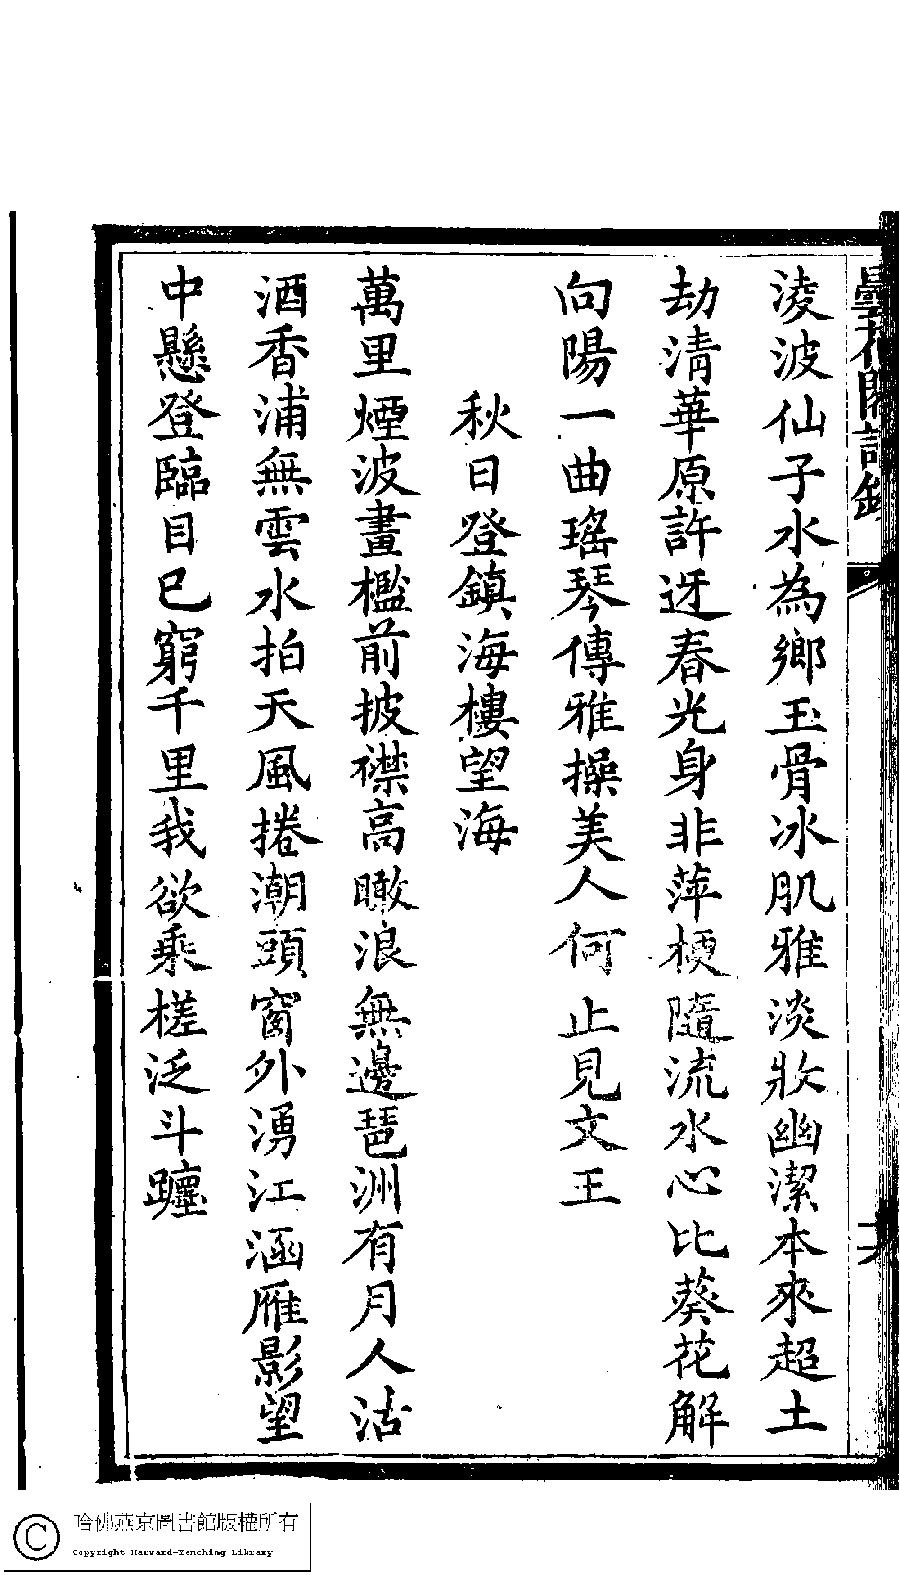 曇花閣詩鈔
淩波仙子水為鄉玉骨冰肌雅淡妝幽潔本來超土
劫清華原許迓春光身非萍梗隨流水心比葵花解
向陽一曲瑤琴傳雅操美人何止見文王
秋日登鎮海樓望海
萬里煙波畫檻前披襟高瞰浪無邊琶洲有月人沽
酒香浦無雲水拍天風捲潮頭窗外湧江涵雁影望
中懸登臨目已窮千里我欲乘槎泛斗躔
哈佛燕京圖書館版權所有
Copyright Harvard-Yenching Library